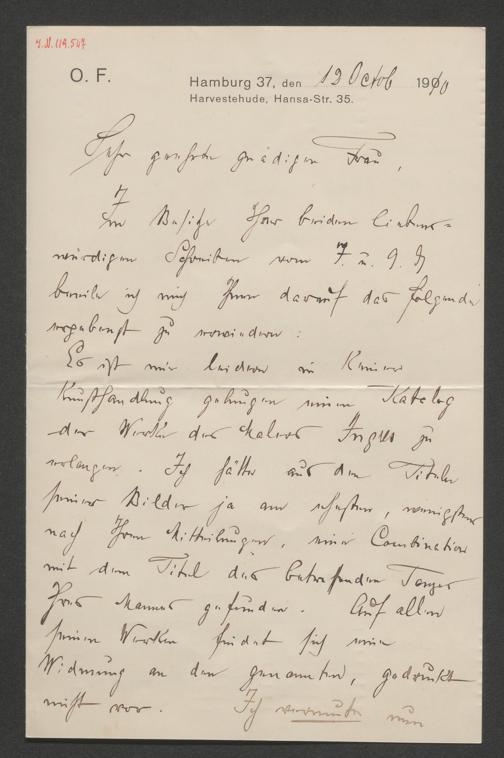 I.N.119.547
O. F.
Hamburg 37, den 12 Octob 1910
Harvestehude, Hansa-Str. 35.
Sehr geehrte gnädige Frau,
Im Besitze Ihrer beiden liebens=
würdigen Schreiben vom 7. u. 9. d
beeile ich mich Ihnen darauf das folgende
ergebenst zu erwiedern:
Es ist mir leider in keiner
Kunsthandlung gelungen einen Katalog
der Werke des Malers Ingres zu
erlangen. Ich hätte aus den Titeln
seiner Bilder ja am ehesten, wenigstens
nach Ihren Mittheilungen, eine Combination
mit dem Titel des betreffenden
Ihres Mannes gefunden. Auf allen
seinen Werken findet sich eine
Widmung an den genannten, gedruckt
nicht vor. Ich vermute nun